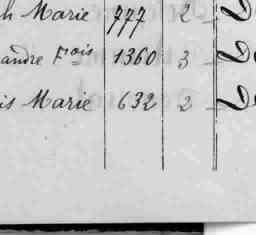 h Marie 777 2
andre Fois 1360 3
is Marie 632 2